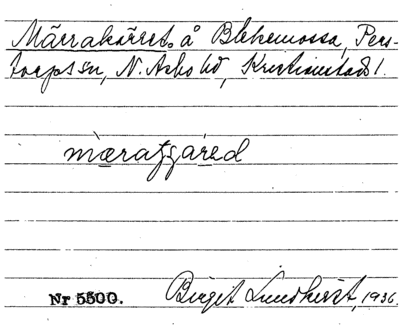 Märrakärret å Blekemossa, Pers-
torps sn, N. Åsbo hd, Kristianstads l.
mærat̡ɕàred
Nr 5500. Birgit Lundkvist, 1936.